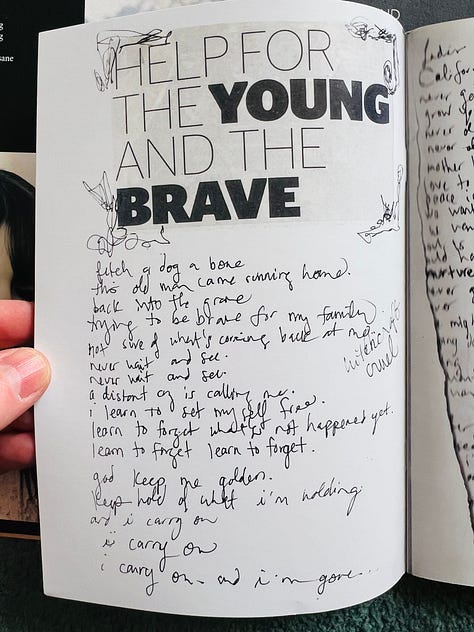 HELP FOR
THE YOUNG
AND THE
BRAVE
fetch a dog a bone
this old man came running home.
back into the grave
trying to be brave for my family
not sure of what's coming back at me.
never wait and see.
never wait and see.
a distant cry is calling me.
i learn to set myself free.
learn to forget what's not happened yet.
learn to forget learn to forget.
god keep me golden.
keep hold of what i'm holding
and i carry on
i carry on
i carry on - and i'm gone...
cruel
never
grow
never
never
mother
love
peace
want
sane